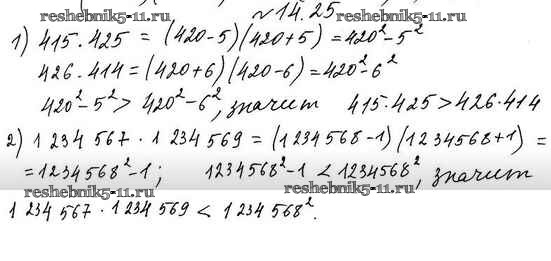 reshebnik5-11.ru reshebnik5-11.ru
№14.25
1) 415·425 = (420-5)(420+5) = 420²-5²
426·414 = (420+6)(420-6) = 420²-6²
420²-5² > 420²-6², значит 415·425 > 426·414
reshebnik5-11.ru
2) 1 234 567 · 1 234 569 = (1 234 568-1)(1 234 568+1) =
= 1234568²-1; 1234568²-1 < 1234568², значит
reshebnik5-11.ru reshebnik5-11.ru
1 234 567 · 1 234 569 < 1 234 568².